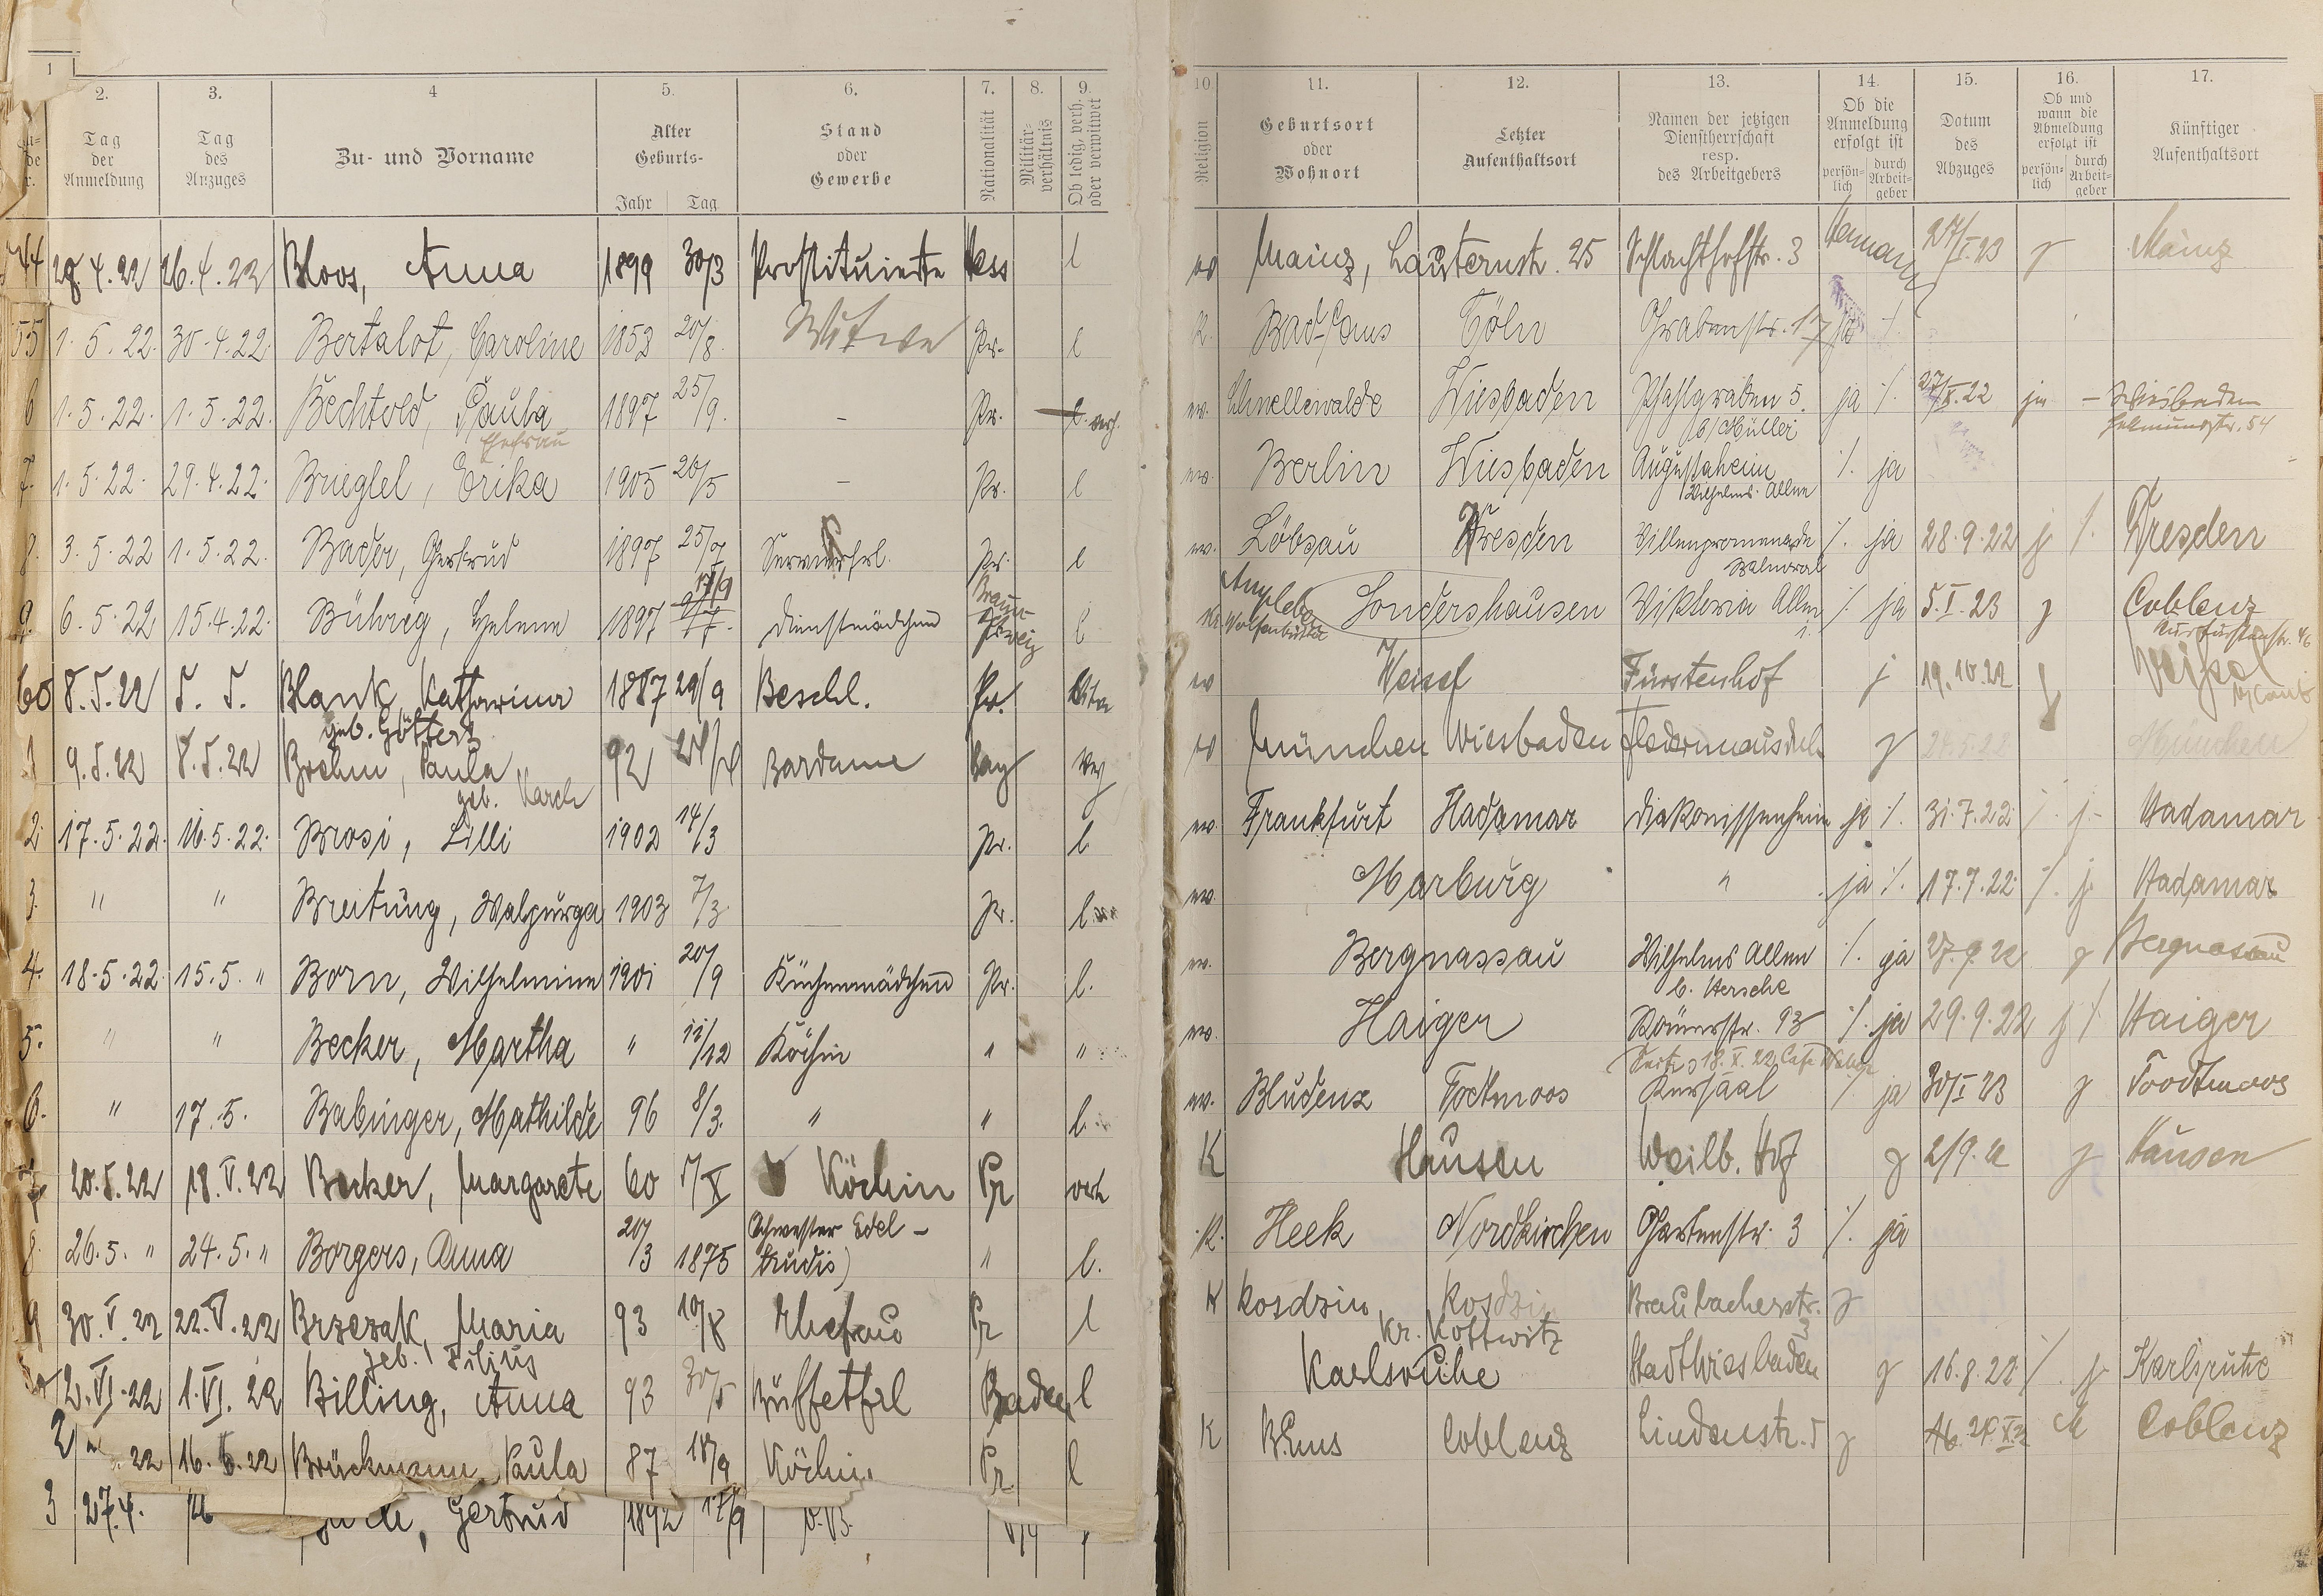 1 2. 3. 4 5. 6. 7. 8. 9. 10. 11. 12. 13. 14. 15. 16. 17.
Tag der Anmeldung
Tag des Anzuges
Zu- und Vorname
Alter Geburts-
Jahr Tag
Stand oder Gewerbe
Nationalität
Militär-verhältnis
Ob ledig, verh. oder verwitwet
Religion
Geburtsort oder Wohnort
Letzter Aufenthaltsort
Namen der jetzigen Dienstherrschaft resp. des Arbeitgebers
Ob die Anmeldung erfolgt ist
persön-lich durch Arbeit-geber
Datum des Abzuges
Ob und wann die Abmeldung erfolgt ist
persön-lich durch Arbeit-geber
Künftiger Aufenthaltsort
28.4.22 26.4.22 Bloos, Anna 1899 30/3 Prostituierte Hess l Mainz, Lauternstr. 25 Schlachthofstr. 3 Mainz
55 1.5.22. 30.4.22. Bertalot, Caroline 1853 20/8. Witwe Pr. l K. Bad-Ems Cöln Grabenstr. 17 ja %.
6 1.5.22. 1.5.22. Bechtold, Paula 1897 25/9. – Pr. l. verh. ev. Schnellewalde Wiesbaden Pfahlgraben 5. ja %. ja – Wiesbaden
Ehefrau b/Müller Hellmundstr. 54
7. 1.5.22. 29.4.22. Brieglel, Erika 1905 20/5 – Pr. l ev. Berlin Wiesbaden Augustaheim %. ja
Wilhelms Allee
8. 3.5.22 1.5.22. Bader, Gertrud 1897 25/7 Servierfrl. Pr. l ev. Löbsau Dresden Villenpromenade %. ja 28.9.22 j %. Dresden
Balmoral
9. 6.5.22 15.4.22. Bührig, Helene 1897 Dienstmädchen Braun-schweig l Ampleben Kr. Wolfenbüttel Sondershausen Viktoria Allee 1. % ja 5.I.23 j Coblenz
Kurfürstenstr. 46
60 8.5.22 5. 5. Blank, Katharina 1887 29/9 Beschl. Pr. Witwe ev Weisel Fürstenhof j 19.10.22 Weisel
geb. Götterz
1 9.5.22 8.5.22 Brehm, Paula 92 Bardame Bay München Wiesbaden j München
geb. Karch
2. 17.5.22. 16.5.22. Brosi, Lilli 1902 14/3 Pr. l. ev. Frankfurt Hadamar Diakonissenheim ja %. 31.7.22. %. j.- Hadamar
3. " " Breitung, Walpurga 1903 7/3 Pr. l. ev. Marburg " ja %. 17.7.22. %. j. Hadamar
4. 18.5.22. 15.5. " Born, Wilhelmine 1901 20/9 Küchenmädchen Pr. l. ev. Bergnassau Wilhelms Allee %. ja 27.9.22 j Bergnassau
b. Hersche
5. " " Becker, Martha " 11/12 Köchin " " ev. Haiger Römerstr. 93 %. ja 29.9.22 j % Haiger
6. " 17.5. Babinger, Mathilde 96 8/3. " " l. ev. Bludenz Todtmoos Kursaal % ja 30/I 23 j Todtmoos
20.5.22 18.V.22 Becker, Margarete 60 5/X Köchin Pr verh K Hausen Weilb. Hof j 2/9.22 j Hausen
8. 26.5. " 24.5. " Borgers, Anna 20/3 1875 Schwester Edel-trudis) " l. K. Heek Nordkirchen Gartenstr. 3 %. ja
9 30.V.22 22.V.22 Brzezak, Maria 93 10/8 Ehefrau Pr l K Kosdzin, Kosdzin Braubacherstr. j
geb. Filius Kr. Kottwitz
2.VI.22 1.VI.22 Billing, Anna 93 30/5 Büffetfrl Baden l Karlsruhe Stadt Wiesbaden j 16.8.22 %. j Karlsruhe
2 22 16.6.22 Brückmann, Paula 87 18/9 Köchin Pr l K B.Ems Coblenz Lindenstr. 5 j Coblenz
3 27.4. Gertrud 1892 17/9